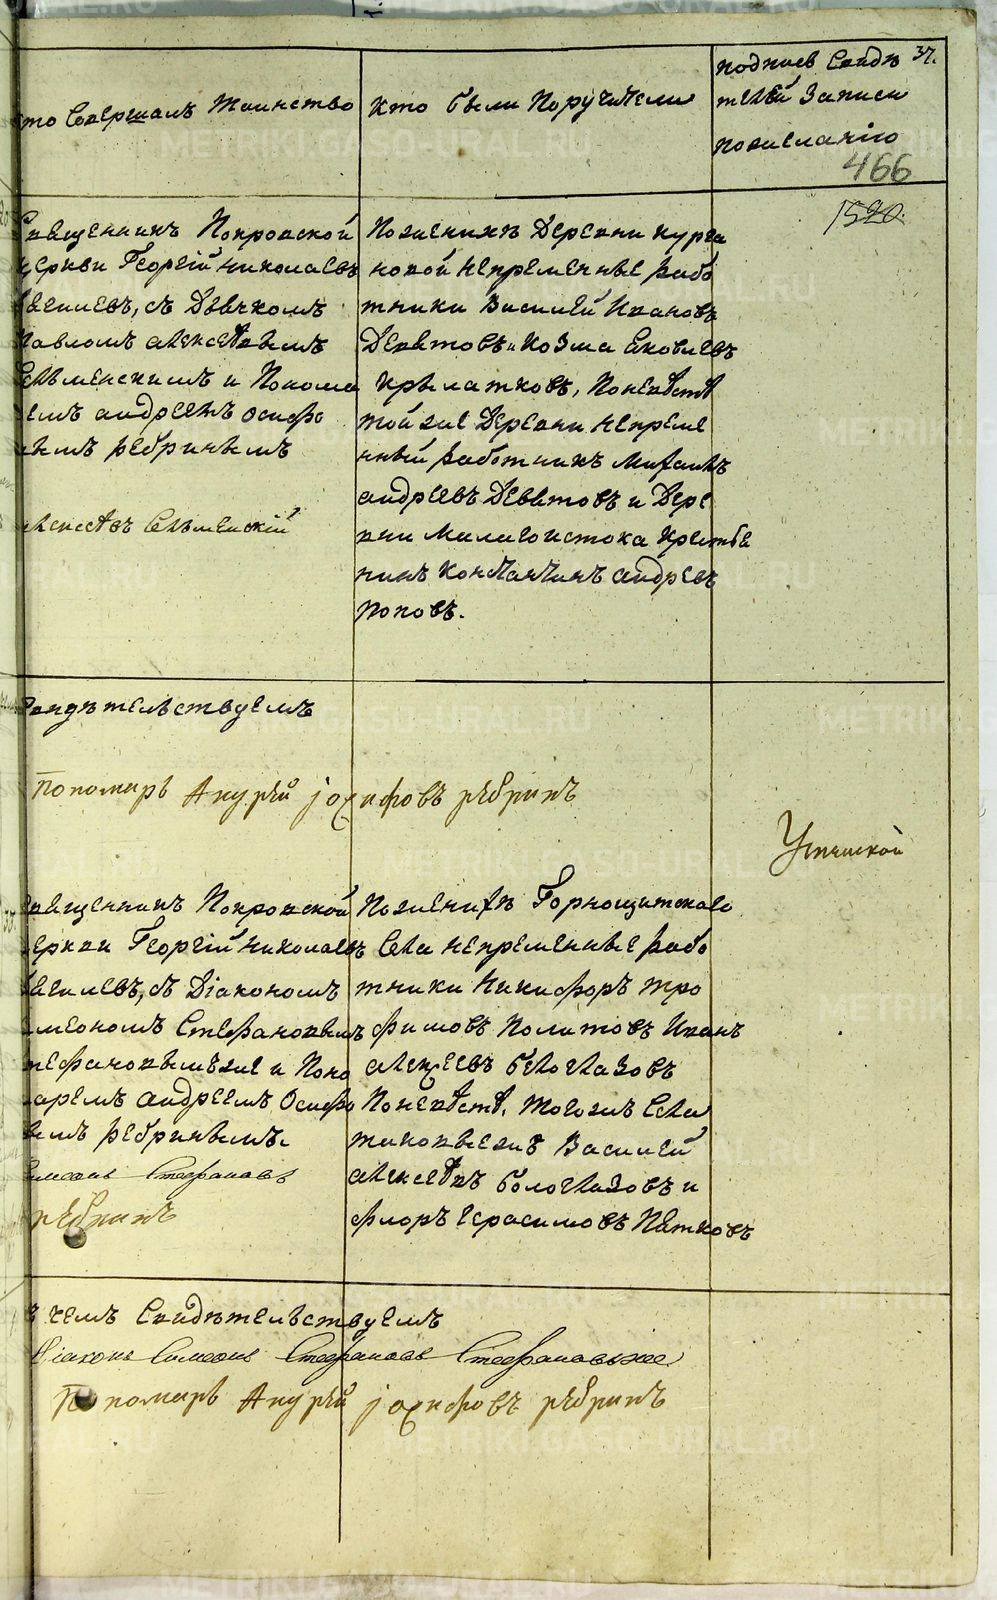 Кто Совершалъ Таинство
Кто были Поручители
подпись Свидѣ
телей Записи
пожеланiю
37.
466
1520.
Священникъ Покровской
церкви Георгiй Николаевъ
съ Дьячкомъ
Павломъ Алексѣевымъ
Сельменскимъ и Понома
ремъ Андреемъ Осифо
вымъ Ребринымъ
Алексѣевъ Сельменскiй
Поженихѣ Деревни Курга
новой непременные рабо
тники Василей Ивановъ
Девятовъ и Козма Яковлевъ
Крылатковъ, Поневѣстѣ
той же Деревни непреме
нный работникъ Михаилъ
Андреевъ Девятовъ и Дере
вни Малаго истока крестья
нинъ Констаньтинъ Андреевъ
Поповъ.
Свидѣтельствуемъ
Пономарь Андрей Iосифовъ рѣбринъ
Упчиской
Священникъ Покровской
церкви Георгiй Николаевъ
съ Дiакономъ
Симеономъ Стефановымъ
Стефановымъ же и Поно
маремъ Андреемъ Осифо
вымъ Ребринымъ.
Симеонъ Стефановъ
рѣбринъ
Поженихѣ Горнощитскаго
Села непременные рабо
тники Никифоръ Тро
фимовъ Политовъ Иванъ
Алексеевъ Белоглазовъ
Поневѣстѣ, тогожъ Села
таковыежъ Василей
Алексѣевъ Бологлазовъ и
Флоръ Герасимовъ Пятковъ
въ чемъ Свидѣтельствуемъ
Дiаконъ Симеонъ Стефановъ Стефановъ же
Пономарь Андрей Iосифовъ рѣбринъ